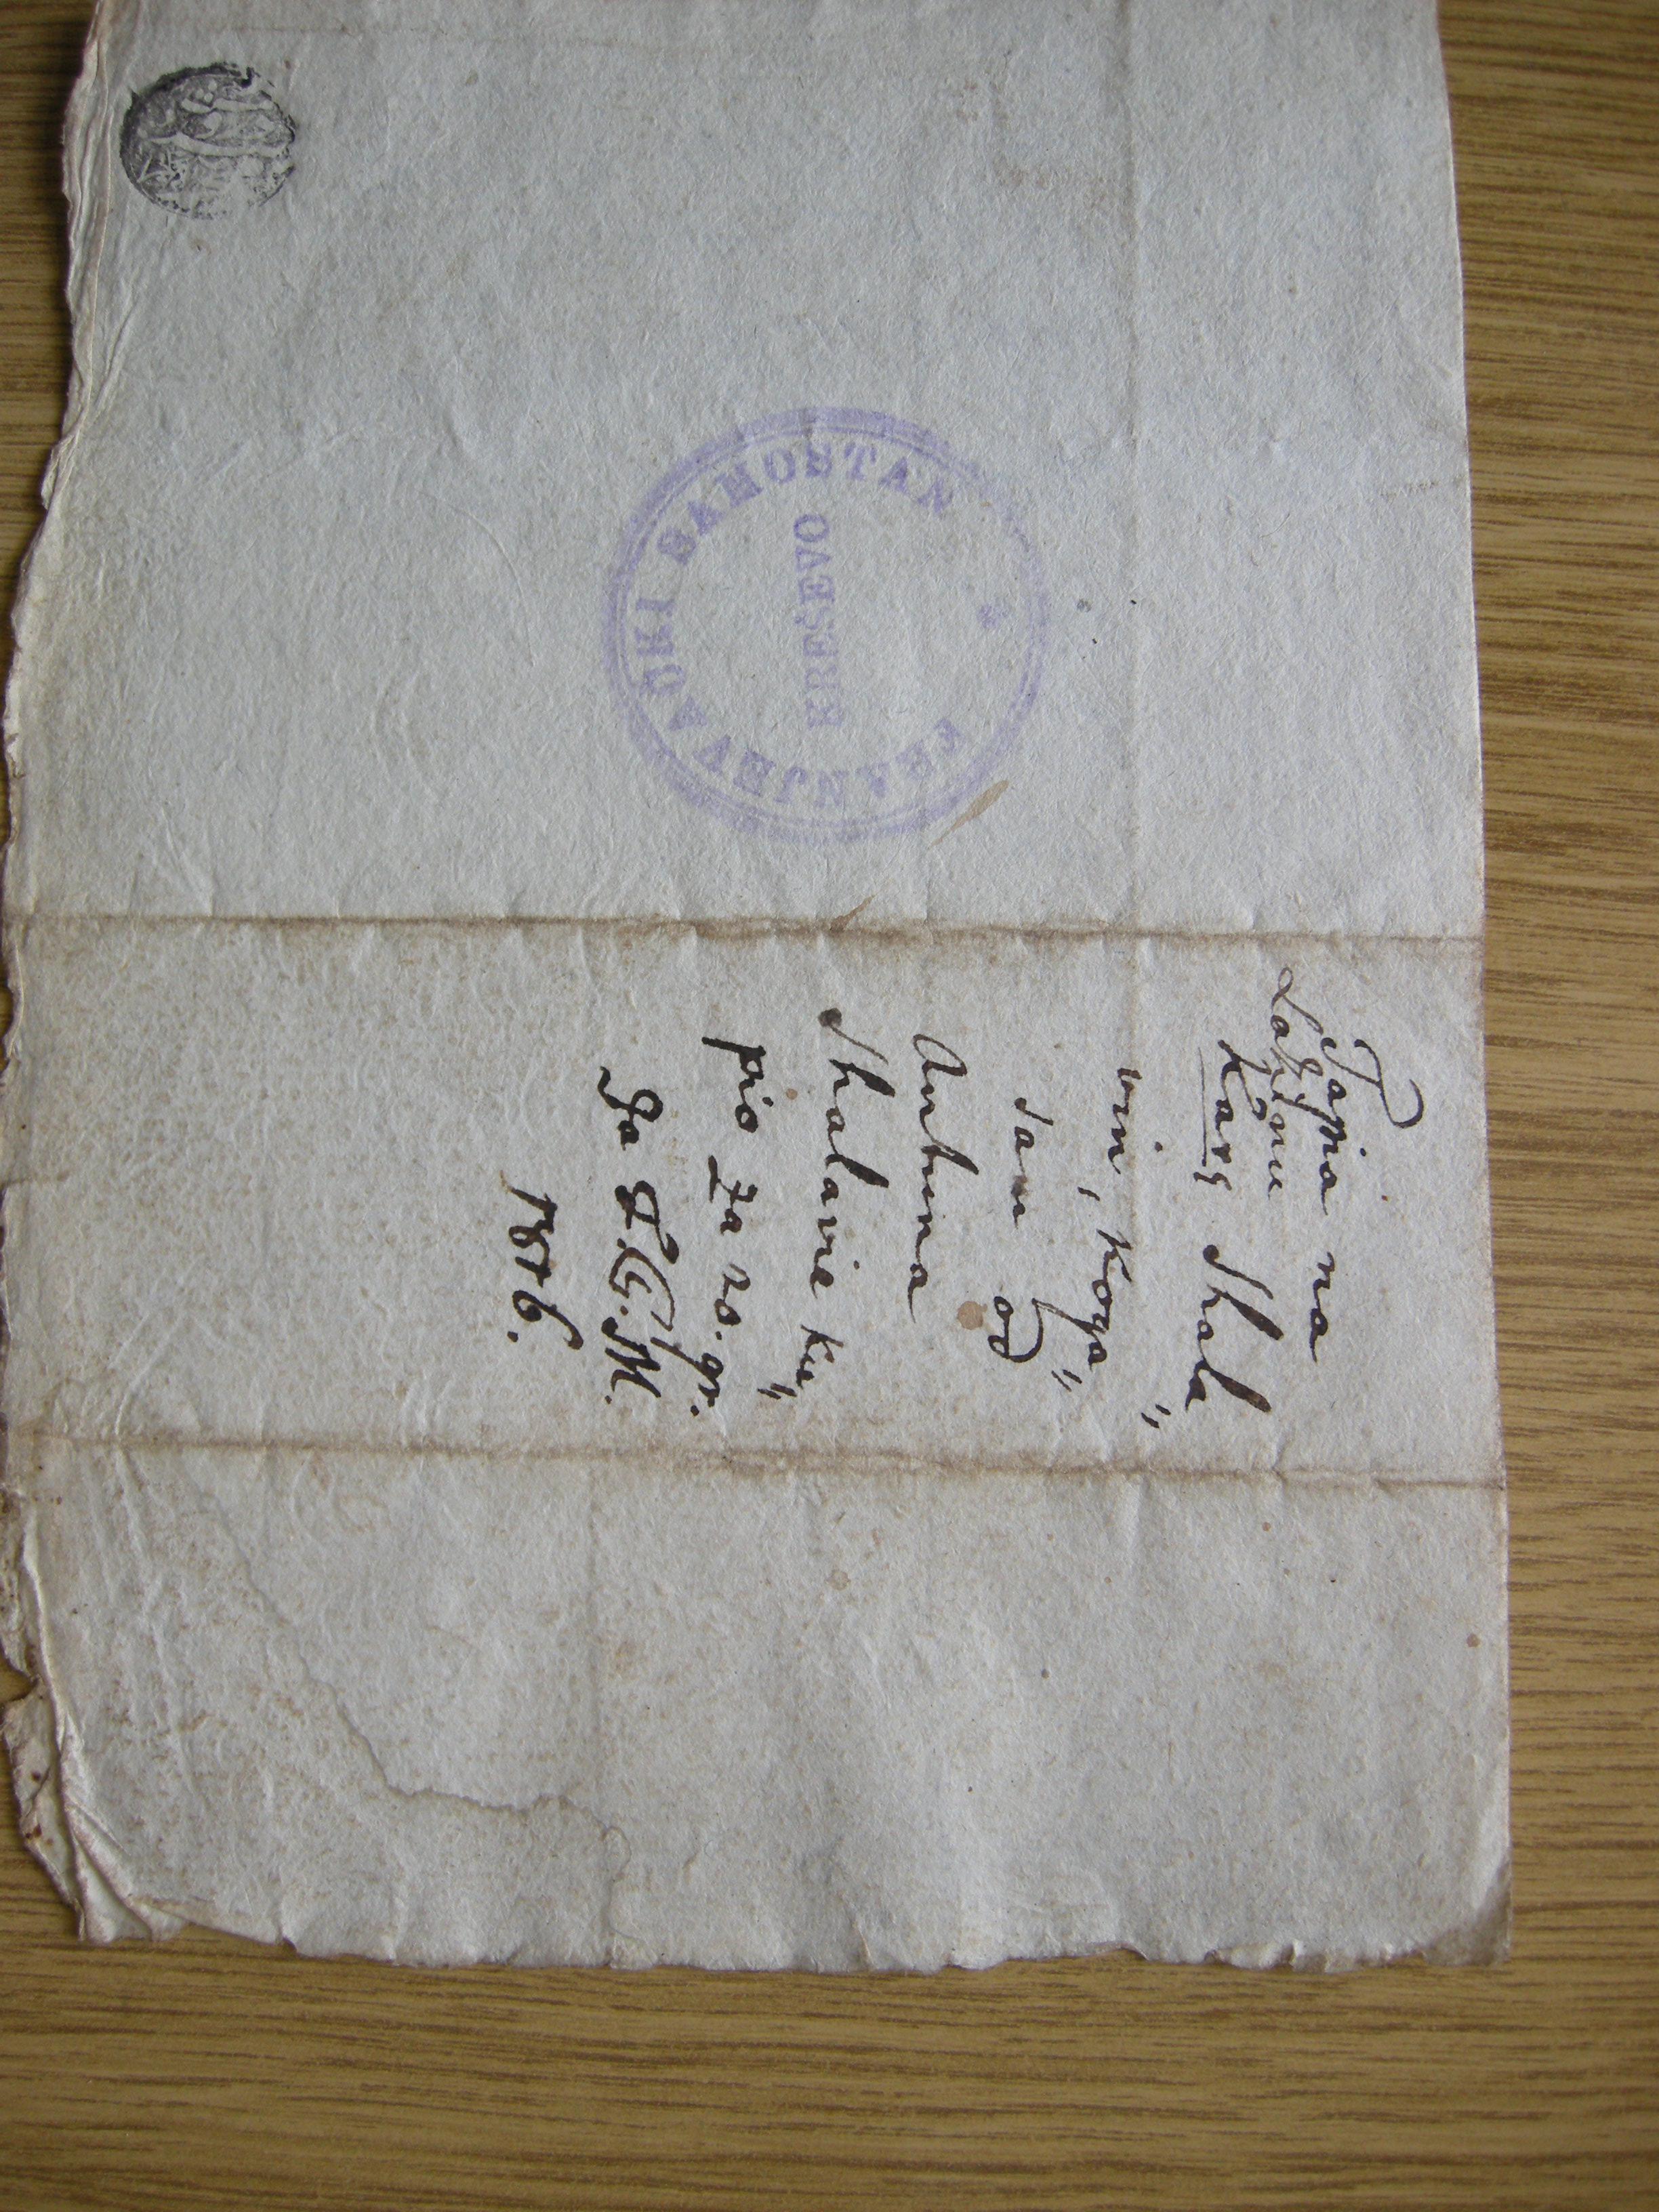 FRANJEVAČKI SAMOSTAN
KREŠEVO
Tapia na
Kars Skala„
vin, koga„
sam od
Antuna
Skalavie ku„
pio za 20. gr.
1846.